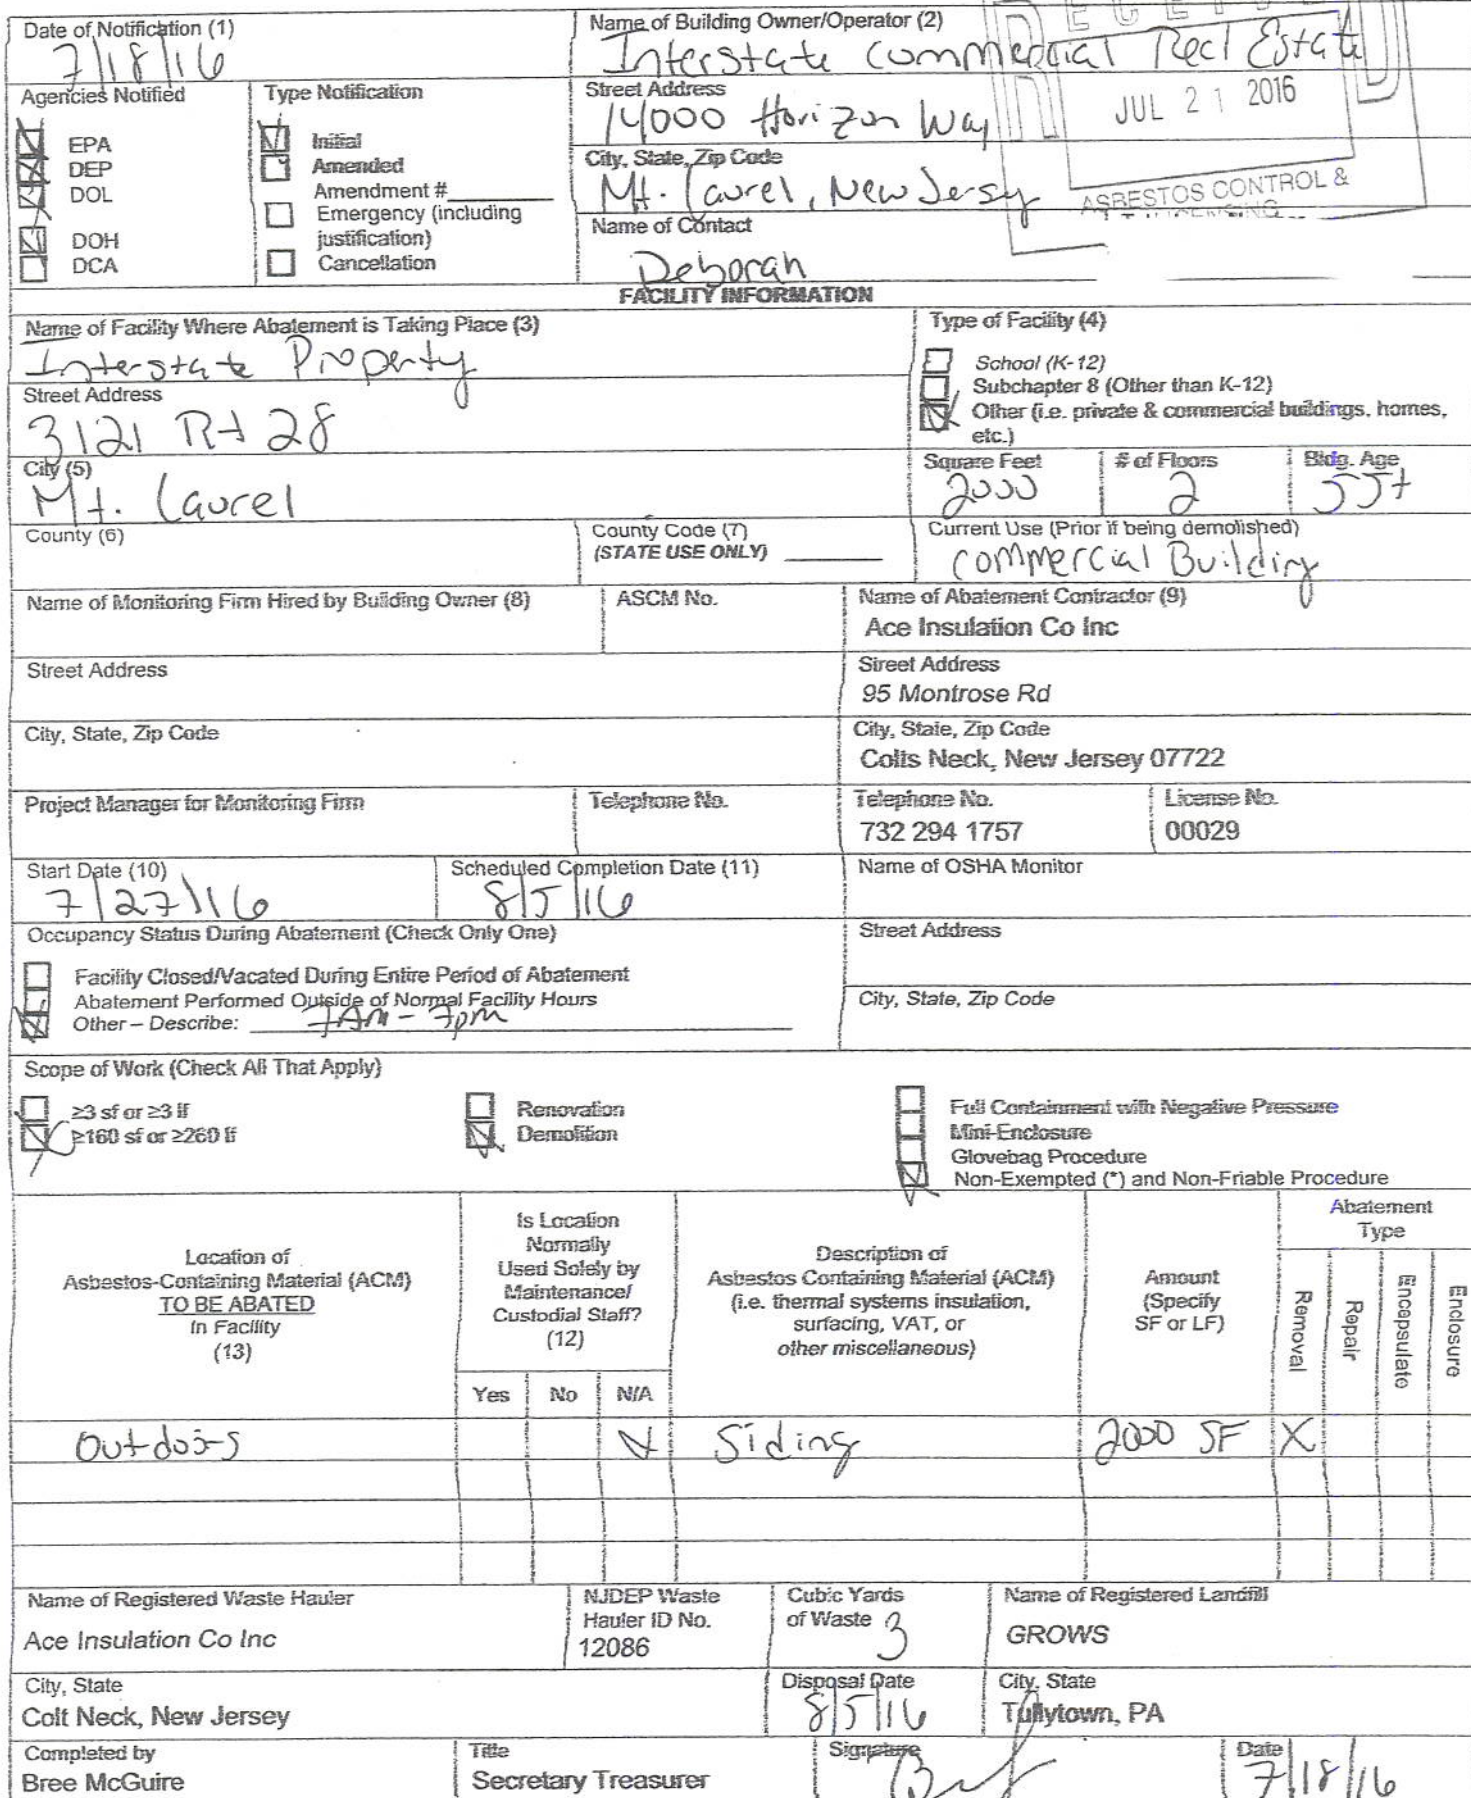 RECEIVED
Date of Notification (1)
7/18/16
Name of Building Owner/Operator (2)
Interstate Commercial Recl Estate
Agencies Notified
EPA
DEP
DOL
DOH
DCA
Type Notification
Initial
Amended
Amendment #
Emergency (including
justification)
Cancellation
Street Address
14000 Horizon Way
JUL 21 2016
City, State, Zip Code
Mt. Laurel, New Jersy
ASBESTOS CONTROL &
Name of Contact
Deborah
FACILITY INFORMATION
Name of Facility Where Abatement is Taking Place (3)
Interstate Property
Street Address
3121 Rt 28
City (5)
Mt. Laurel
Type of Facility (4)
School (K-12)
Subchapter 8 (Other than K-12)
Other (i.e. private & commercial buildings, homes,
etc.)
Square Feet
2000
# of Floors
2
Bldg. Age
55+
County (6)
County Code (7)
(STATE USE ONLY)
Current Use (Prior if being demolished)
Commercial Building
Name of Monitoring Firm Hired by Building Owner (8)
ASCM No.
Name of Abatement Contractor (9)
Ace Insulation Co Inc
Street Address
Street Address
95 Montrose Rd
City, State, Zip Code
City, State, Zip Code
Colts Neck, New Jersey 07722
Project Manager for Monitoring Firm
Telephone No.
Telephone No.
732 294 1757
License No.
00029
Start Date (10)
7/27/16
Scheduled Completion Date (11)
8/5/16
Name of OSHA Monitor
Occupancy Status During Abatement (Check Only One)
Facility Closed/Vacated During Entire Period of Abatement
Abatement Performed Outside of Normal Facility Hours
Other – Describe: 7AM - 7pm
Street Address
City, State, Zip Code
Scope of Work (Check All That Apply)
≥3 sf or ≥3 lf
≥160 sf or ≥260 lf
Renovation
Demolition
Full Containment with Negative Pressure
Mini-Enclosure
Glovebag Procedure
Non-Exempted (*) and Non-Friable Procedure
Location of
Asbestos-Containing Material (ACM)
TO BE ABATED
In Facility
(13)
Is Location
Normally
Used Solely by
Maintenance/
Custodial Staff?
(12)
Yes
No
N/A
Description of
Asbestos Containing Material (ACM)
(i.e. thermal systems insulation,
surfacing, VAT, or
other miscellaneous)
Amount
(Specify
SF or LF)
Abatement
Type
Removal
Repair
Encapsulate
Enclosure
Outdoors
Siding
2000 SF X
Name of Registered Waste Hauler
Ace Insulation Co Inc
NJDEP Waste
Hauler ID No.
12086
Cubic Yards
of Waste 3
Name of Registered Landfill
GROWS
City, State
Colt Neck, New Jersey
Disposal Date
8/5/16
City, State
Tullytown, PA
Completed by
Bree McGuire
Title
Secretary Treasurer
Signature
Date
7/18/16